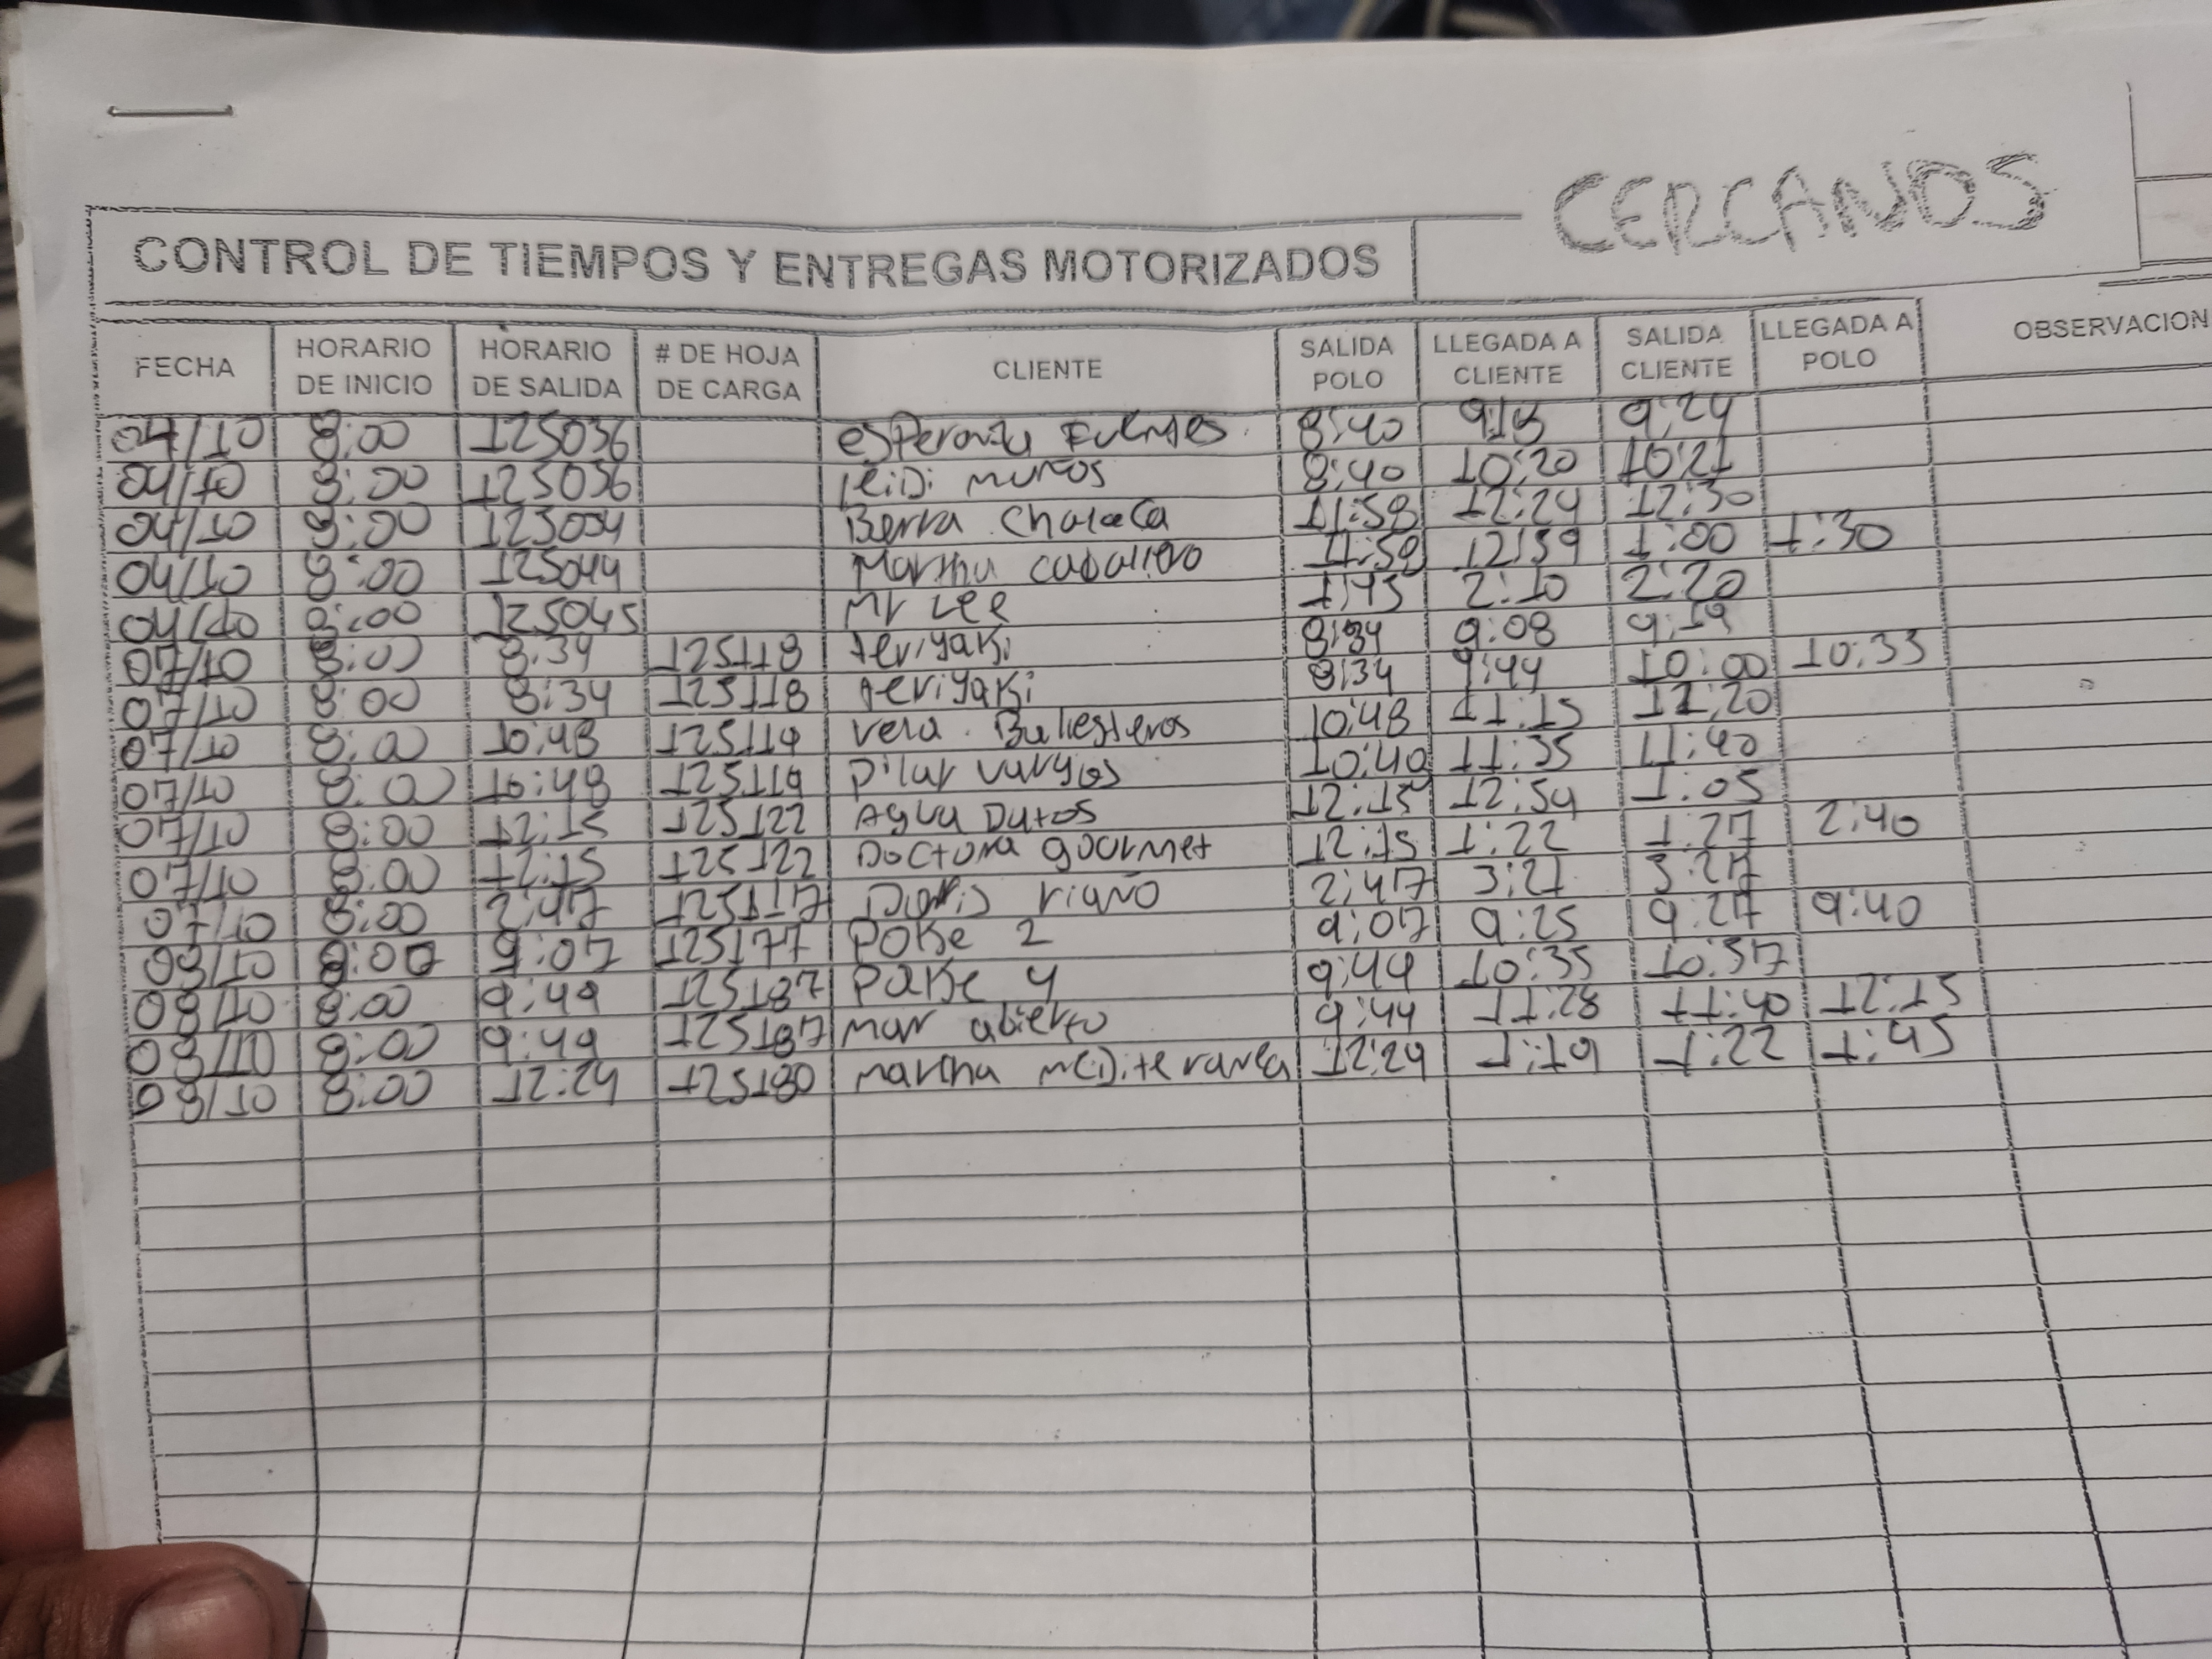 CERCANOS
CONTROL DE TIEMPOS Y ENTREGAS MOTORIZADOS
FECHA HORARIO DE INICIO HORARIO DE SALIDA # DE HOJA DE CARGA CLIENTE SALIDA POLO LLEGADA A CLIENTE SALIDA CLIENTE LLEGADA A POLO OBSERVACION
04/10 8:00 125036 esperanza Fuentes 8:40 9:24
04/10 8:00 125036 leiDi muños 8:40 10:20 10:21
04/10 8:00 Barra chalaca 11:58 12:24 12:30
04/10 8:00 125044 Martha caballero 11:58 12:59 1:00 1:30
04/10 8:00 125045 Mr Lee 1:45 2:10 2:20
07/10 8:00 8:34 125118 teriyaki 8:34 9:08 9:19
07/10 8:00 8:34 125118 teriyaki 8:34 9:44 10:00 10:33
07/10 8:00 10:48 125119 vera Ballesteros 10:48 11:15 11:20
07/10 8:00 10:48 125119 pilar vargas 10:48 11:35 11:40
07/10 8:00 12:15 125122 Agua Dulos 12:15 12:54 1:05
07/10 8:00 12:15 125122 Doctora gourmet 12:15 1:22 1:27 2:40
07/10 8:00 2:47 125117 Doris riaño 2:47 3:21 3:27
08/10 8:00 9:07 125177 POKe 2 9:07 9:25 9:27 9:40
08/10 8:00 9:44 125187 POKe 4 9:44 10:35 10:37
08/10 8:00 9:44 125187 mar abierto 9:44 11:28 11:40 12:15
08/10 8:00 12:24 125180 martha meDiteranea 12:24 1:19 1:22 1:45